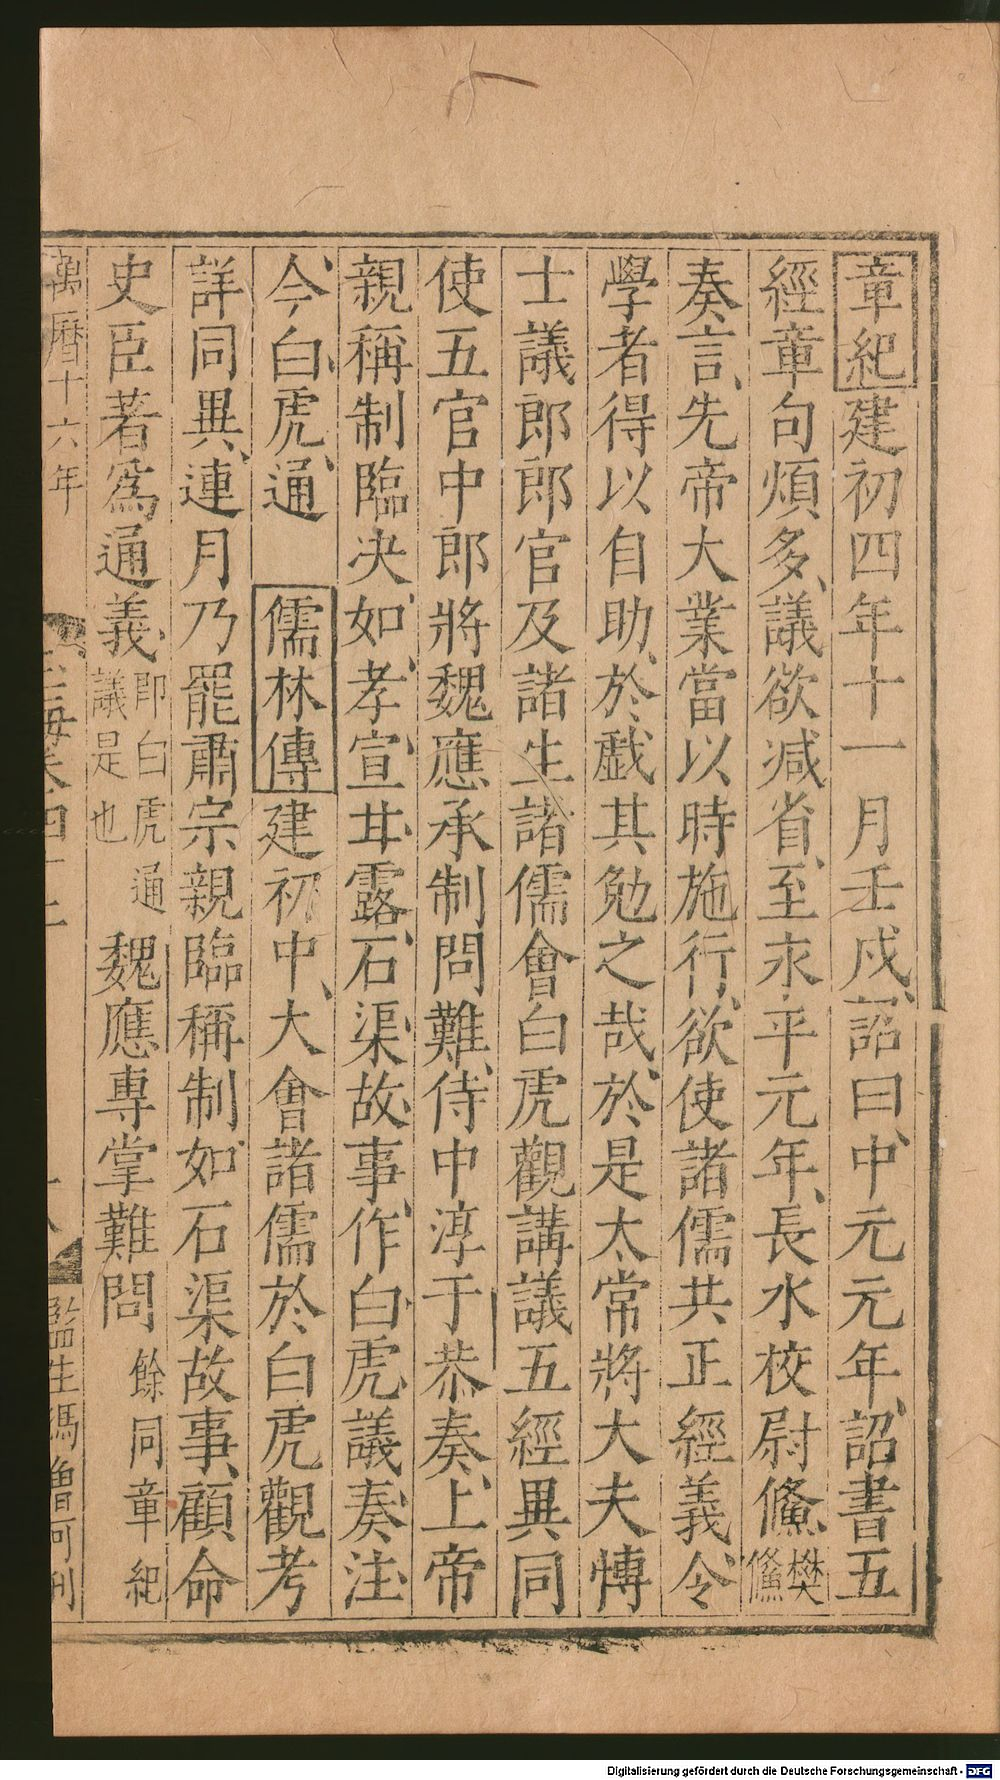 章紀建初四年十一月壬戍詔曰中元元年詔書五
經章句煩多議欲减省至永平元年長水校尉鯈樊鯈
奏言先帝大業當以時施行欲使諸儒共正經義令
學者得以自助於戯其勉之哉於是太常將大夫愽
士議郎郎官及諸生諸儒會白虎觀講議五經異同
使五官中郎將魏應承制問難侍中淳于恭奏上帝
親稱制臨决如孝宣甘露石渠故事作白虎議奏注
今白虎通 儒林傳建初中大會諸儒於白虎觀考
詳同異連月乃罷肅宗親臨稱制如石渠故事顧命
史臣著爲通義即白虎通議是也 魏應專掌難問餘同章紀
萬曆十六年 玉海卷四十二 監生馮魯可刊
Digitalisierung gefördert durch die Deutsche Forschungsgemeinschaft - DFG